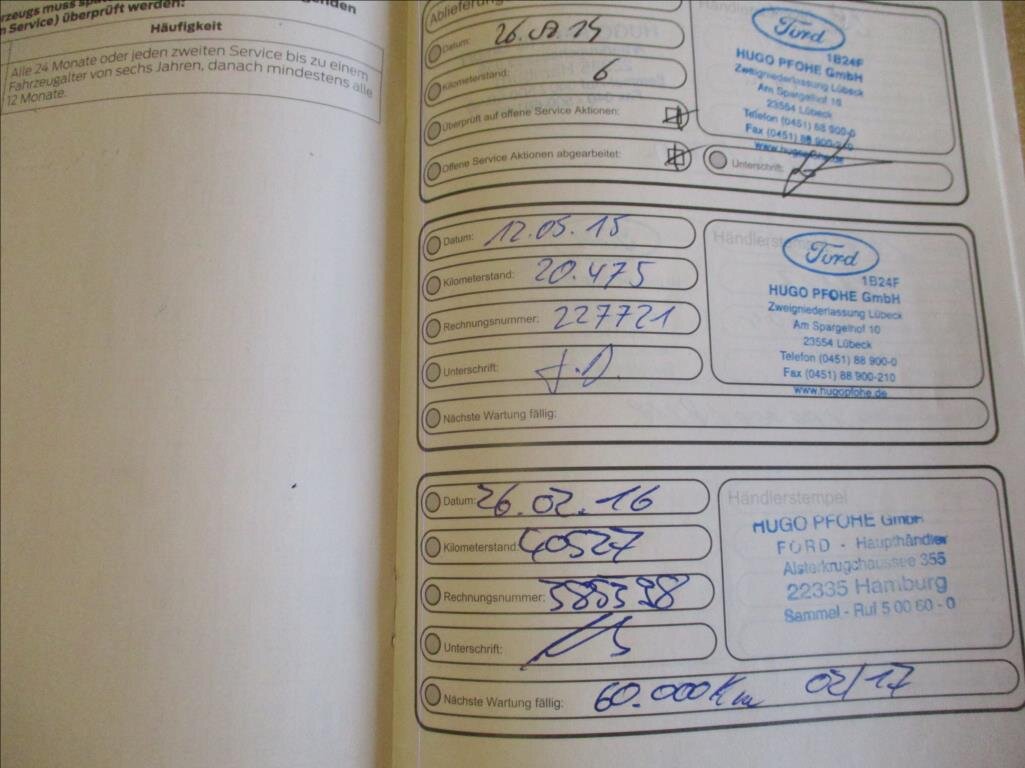 rzeugs muss
n Service) überprüft werden:
Häufigkeit
Alle 24 Monate oder jeden zweiten Service bis zu einem
Fahrzeugalter von sechs Jahren, danach mindestens alle
12 Monate.
Ablieferung
Datum:
Kilometerstand: 6
Überprüft auf offene Service Aktionen:
Offene Service Aktionen abgearbeitet:
Ford
1B24F
HUGO PFOHE GmbH
Zweigniederlassung Lübeck
Am Spargelhof 10
23554 Lübeck
Telefon (0451) 88 900-0
Fax (0451) 88 900-210
www.hugopfohe.de
Unterschrift:
Datum: 12.05.15
Kilometerstand: 20.475
Rechnungsnummer: 227721
Unterschrift:
Nächste Wartung fällig:
Händlerstempel
Ford
1B24F
HUGO PFOHE GmbH
Zweigniederlassung Lübeck
Am Spargelhof 10
23554 Lübeck
Telefon (0451) 88 900-0
Fax (0451) 88 900-210
www.hugopfohe.de
Datum: 26.02.16
Kilometerstand: 40527
Rechnungsnummer: 385398
Unterschrift:
Nächste Wartung fällig: 60.000 Km 02/17
Händlerstempel
HUGO PFOHE GmbH
FORD - Haupthändler
Alsterkrugchaussee 355
22335 Hamburg
Sammel - Ruf 5 00 60 - 0